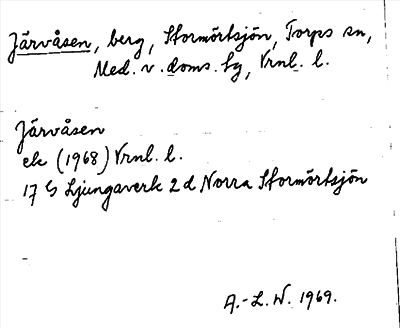 Järvåsen, berg, Stormörtsjön, Torps sn,
Med. v. doms. tg, Vrnl. l.
Järvåsen
ek (1968) Vrnl. l.
17 G Ljungaverk 2 d Norra Stormörtsjön
A.-L. W. 1969.